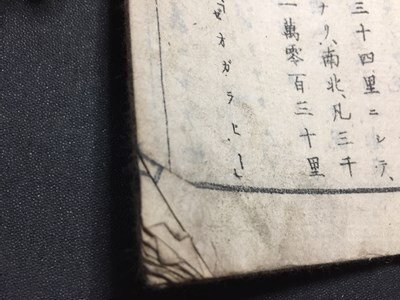 三十四里ニシテ、
ナリ、南北、凡三千
一萬零百三十里
オガラヒ